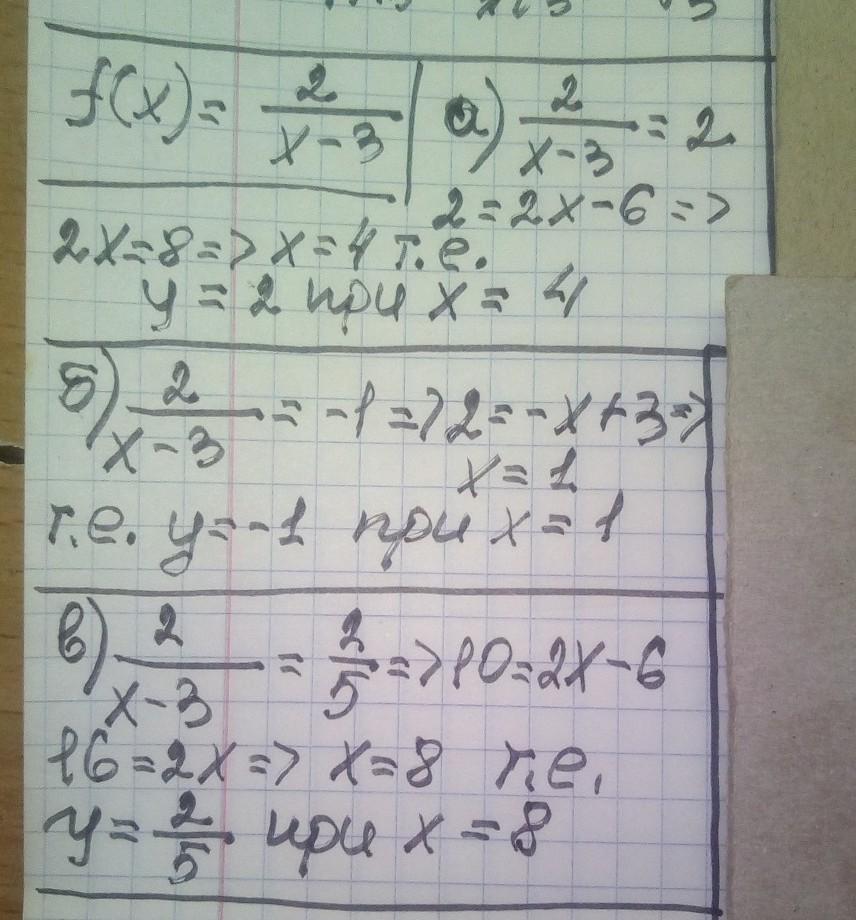 f(x) = 2/(x-3)
а) 2/(x-3) = 2
2 = 2x - 6 =>
2x = 8 => x = 4 т.е.
y = 2 при x = 4
б) 2/(x-3) = -1 => 2 = -x + 3 =>
x = 1
т.е. y = -1 при x = 1
в) 2/(x-3) = 2/5 => 10 = 2x - 6
16 = 2x => x = 8 т.е.
y = 2/5 при x = 8